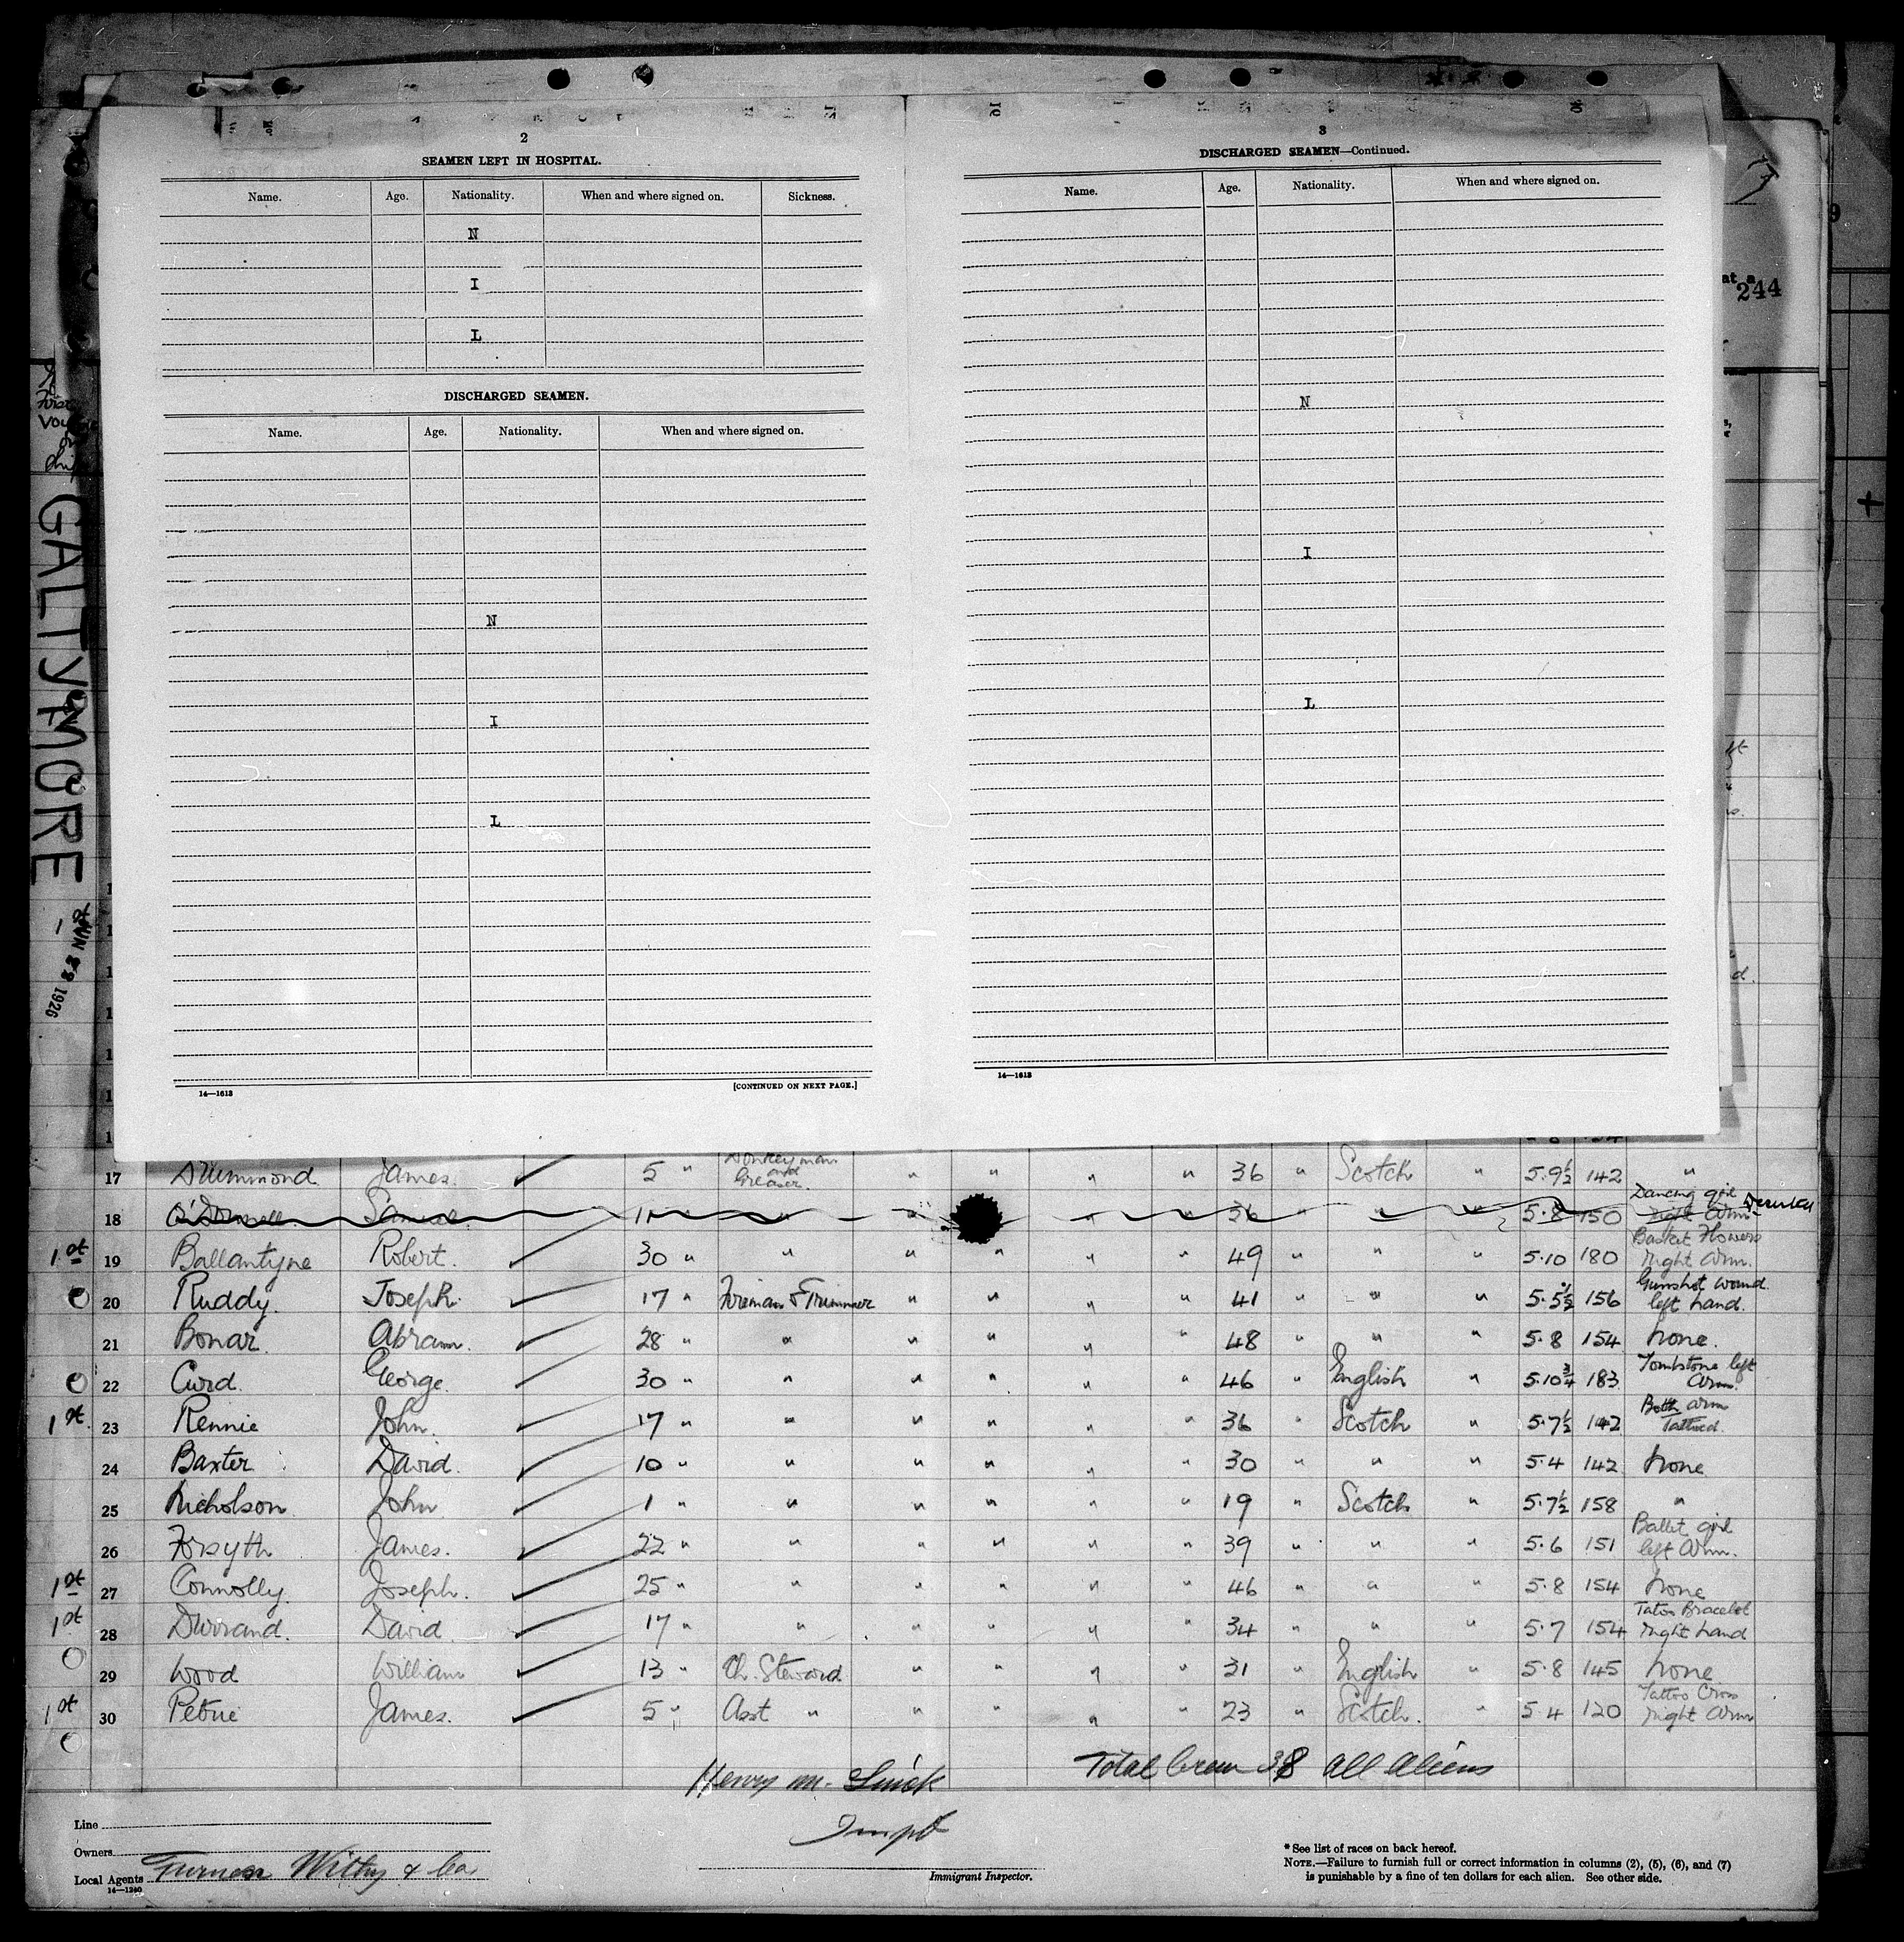 2
SEAMEN LEFT IN HOSPITAL.
Name. Age. Nationality. When and where signed on. Sickness.
N
I
L
DISCHARGED SEAMEN.
Name. Age. Nationality. When and where signed on.
N
I
L
14—1613 [CONTINUED ON NEXT PAGE.]
3
DISCHARGED SEAMEN—Continued.
Name. Age. Nationality. When and where signed on.
N
I
L
14—1613
244
First
GALTYMORE
1926
17 Drummond James. 5 " Donkeyman and Greaser. " " " " 36 " Scotch " 5.9½ 142 "
18 O'Donnell Samuel 11 " " " " " 36 " " " 5.8 150 Dancing girl right arm
1st 19 Ballantyne Robert. 30 " " " " " " 49 " " " 5.10 180 Basket Flowers right arm.
20 Ruddy. Joseph. 17 " Fireman & Trimmer " " " " 41 " " " 5.5½ 156 Gunshot wound left hand.
21 Bonar. Abram. 28 " " " " " " 48 " " " 5.8 154 none.
22 Curd. George. 30 " " " " " " 46 " English " 5.10¾ 183 Tombstone left arm.
1st. 23 Rennie John. 17 " " " " " " 36 " Scotch " 5.7½ 142 Both arm Tattued.
24 Baxter David. 10 " " " " " " 30 " " " 5.4 142 none
25 Nicholson John 1 " " " " " " 19 " Scotch " 5.7½ 158 "
26 Forsyth James. 22 " " " " " " 39 " " " 5.6 151 Ballet girl left arm.
1st 27 Connolly. Joseph. 25 " " " " " " 46 " " " 5.8 154 none
1st 28 Durrand. David. 17 " " " " " " 34 " " " 5.7 154 Tatoo Bracelet right hand
29 Wood William 13 " Ch. Steward " " " " 31 " English " 5.8 145 none
1st 30 Petrie James. 5 " Asst " " " " " 23 " Scotch. " 5.4 120 Tattoo Cross right arm
Total Crew 38 All Aliens
Henry M.
Line
Owners
Local Agents Furness Withy & Co.
14—1240
Immigrant Inspector.
* See list of races on back hereof.
NOTE.—Failure to furnish full or correct information in columns (2), (5), (6), and (7)
is punishable by a fine of ten dollars for each alien. See other side.